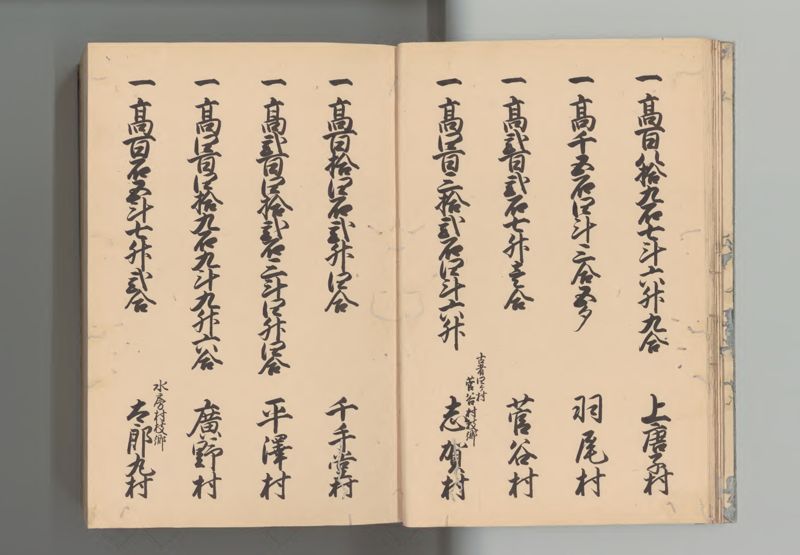 一 高百八拾九石七斗六升九合 上唐子村
一 高千五石四斗三合五夕 羽尾村
一 高弐百弐石七升壱合 菅谷村
古者四ヶ村
菅谷村枝郷
一 高四百三拾弐石四斗六升 志賀村
一 高百拾四石弐升四合 千手堂村
一 高弐百四拾弐石三斗四升四合 平澤村
一 高四百四拾九石九斗九升六合 廣野村
水房村枝郷
一 高百石五斗七升弐合 太郎丸村